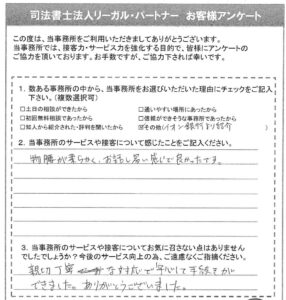 司法書士法人リーガル・パートナー　お客様アンケート
この度は、当事務所をご利用いただきましてありがとうございます。
当事務所では、接客力・サービス力を強化する目的で、皆様にアンケートの
ご協力を頂いております。お手数ですが、ご協力下されば幸いです。
1．数ある事務所の中から、当事務所をお選びいただいた理由にチェックをご記入
下さい。（複数選択可）
□土日の相談ができたから　□通いやすい場所にあったから
□初回無料相談であったから　□信頼ができそうな事務所であったから
□知人から紹介された・評判を聞いたから　☑その他（イオン銀行より紹介）
2．当事務所のサービスや接客について感じたことをご記入ください。
物腰が柔らかく、お話し易い感じで良かったです。
3．当事務所のサービスや接客についてお気に召さない点はありません
でしたでしょうか？今後のサービス向上の為、ご遠慮なくご指摘ください。
親切丁寧な対応で安心して手続きが
できました。ありがとうございました。